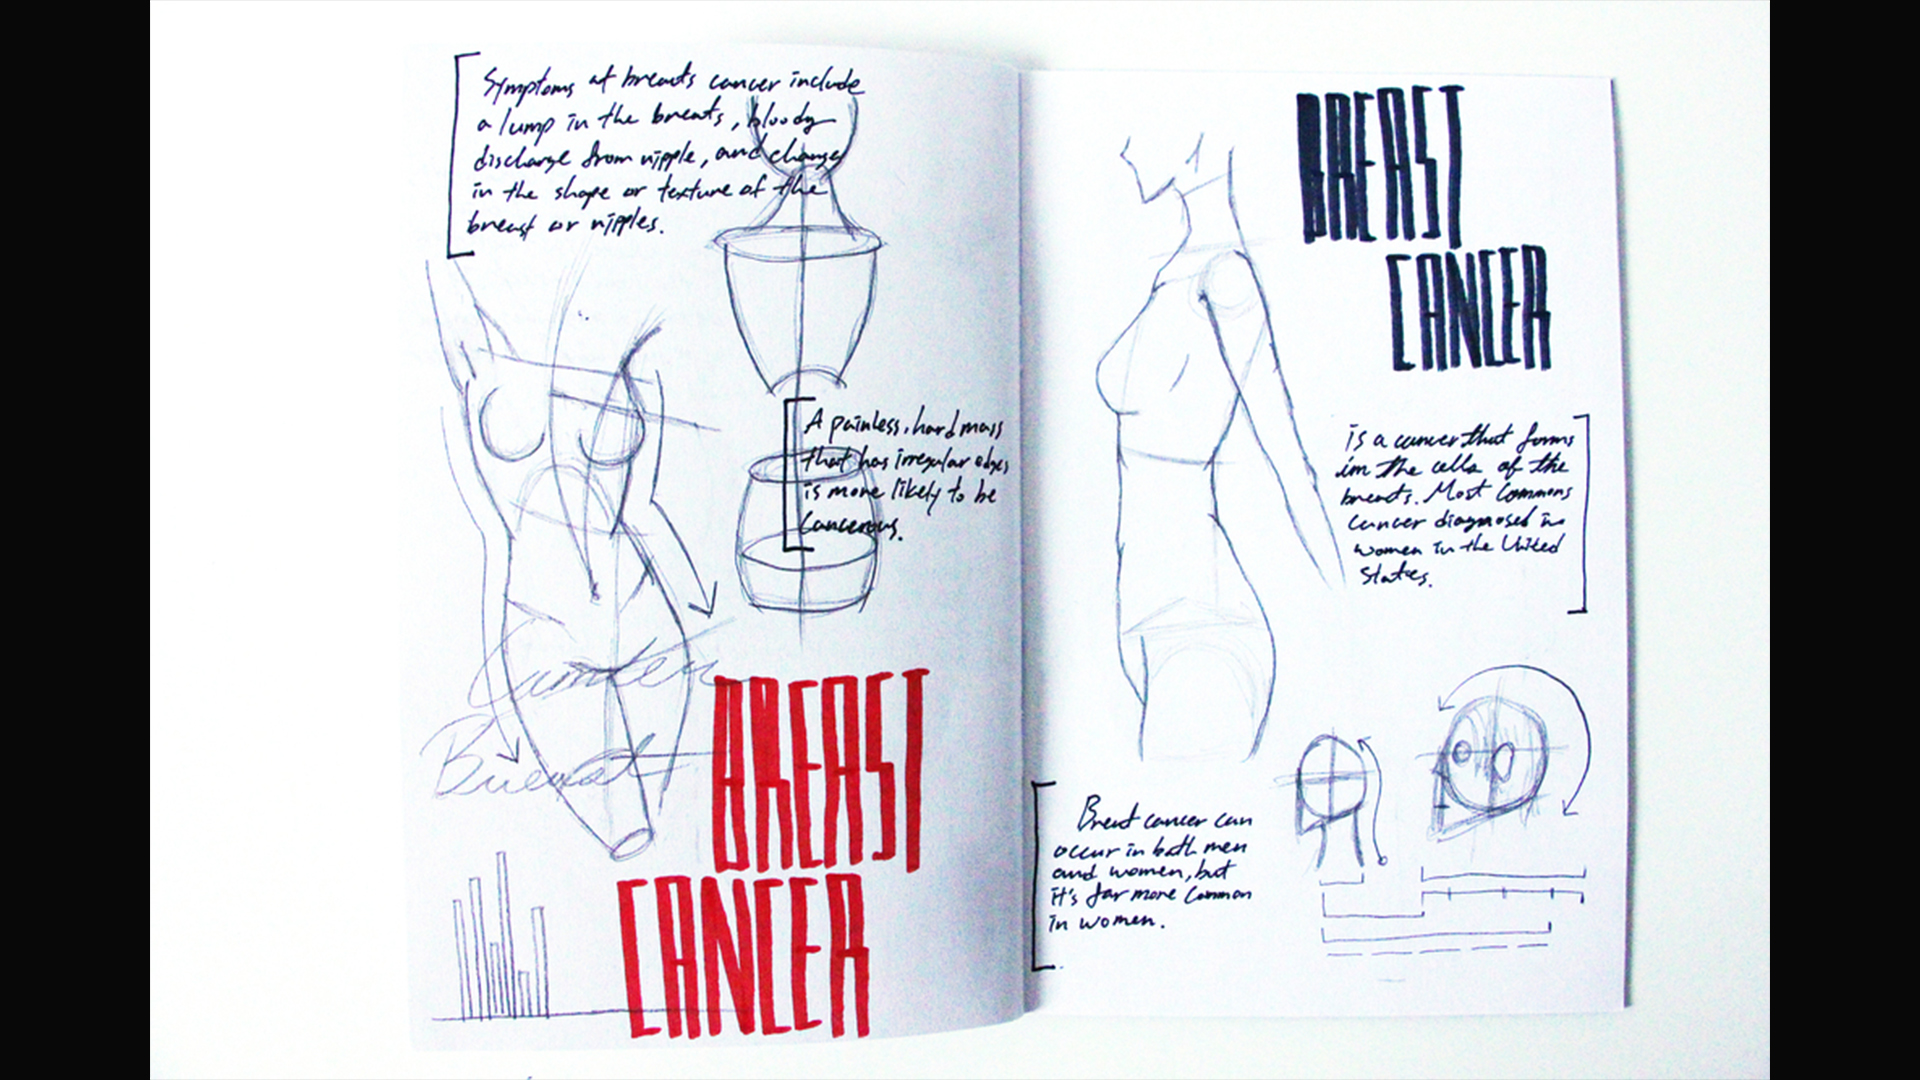 Symptoms at breasts cancer include
a lump in the breats, bloody
discharge from nipple, and changes
in the shape or texture of the
breast or nipples.
A painless, hard mass
that has irregular edges
is more likely to be
cancerous.
Cancer
Breast
BREAST
CANCER
BREAST
CANCER
is a cancer that forms
im the cells of the
breasts. Most Commons
cancer diagnosed in
women in the United
States.
Breast cancer can
occur in both men
and women, but
it's far more Common
in women.